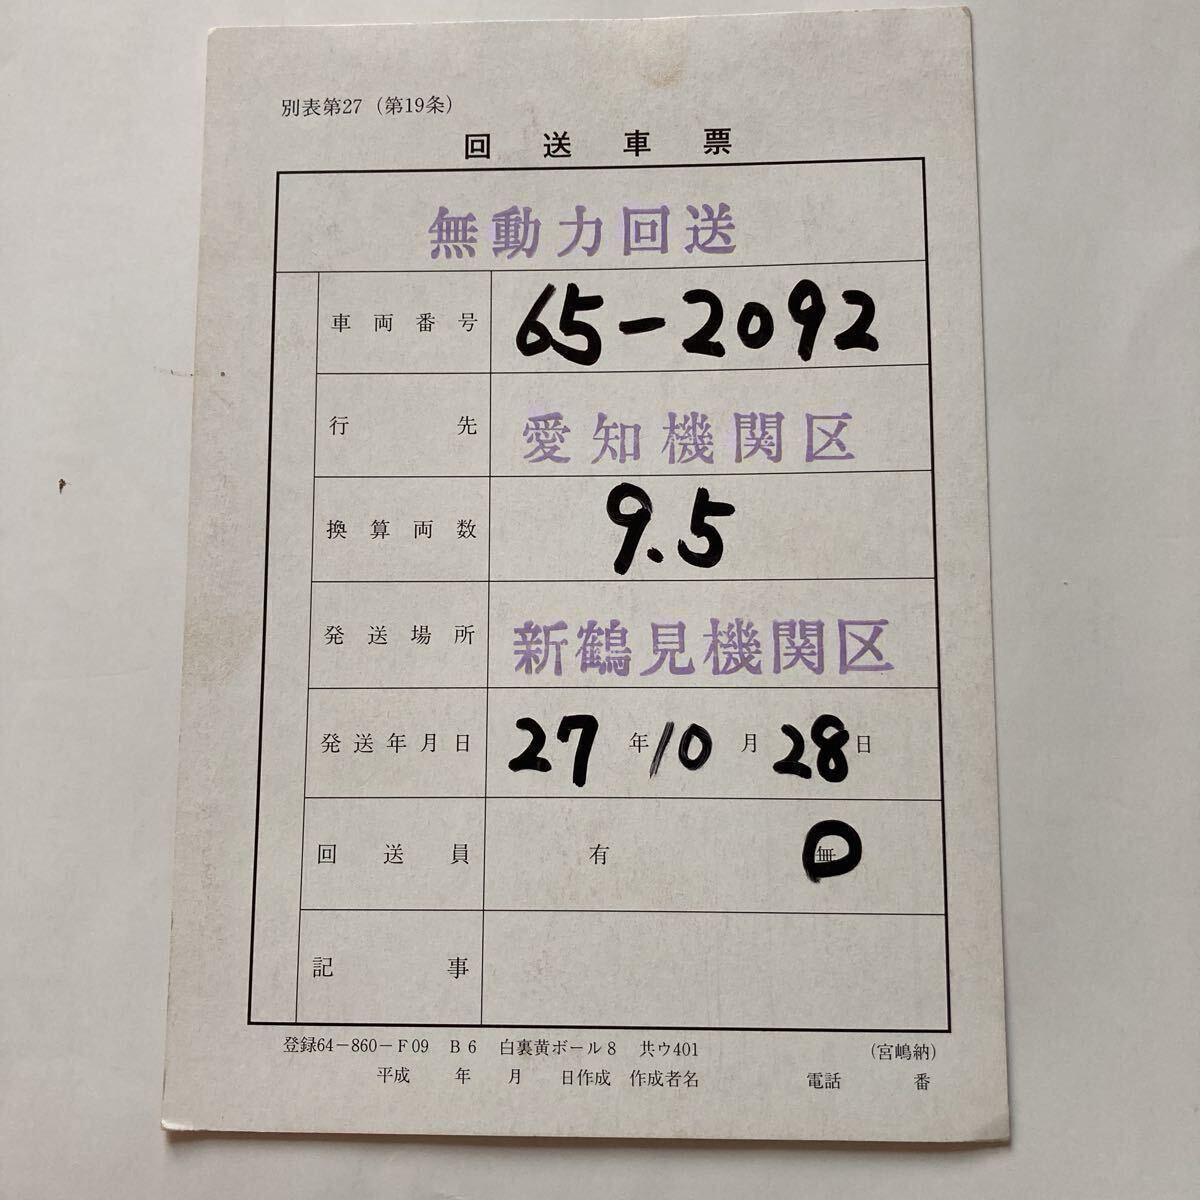 別表第27（第19条）
回送車票
無動力回送
車両番号 65-2092
行先 愛知機関区
換算両数 9.5
発送場所 新鶴見機関区
発送年月日 27年10月28日
回送員 有 無
記事
登録64-860-F09 B6 白裏黄ボール8 共ウ401 （宮嶋納）
平成 年 月 日作成 作成者名 電話 番